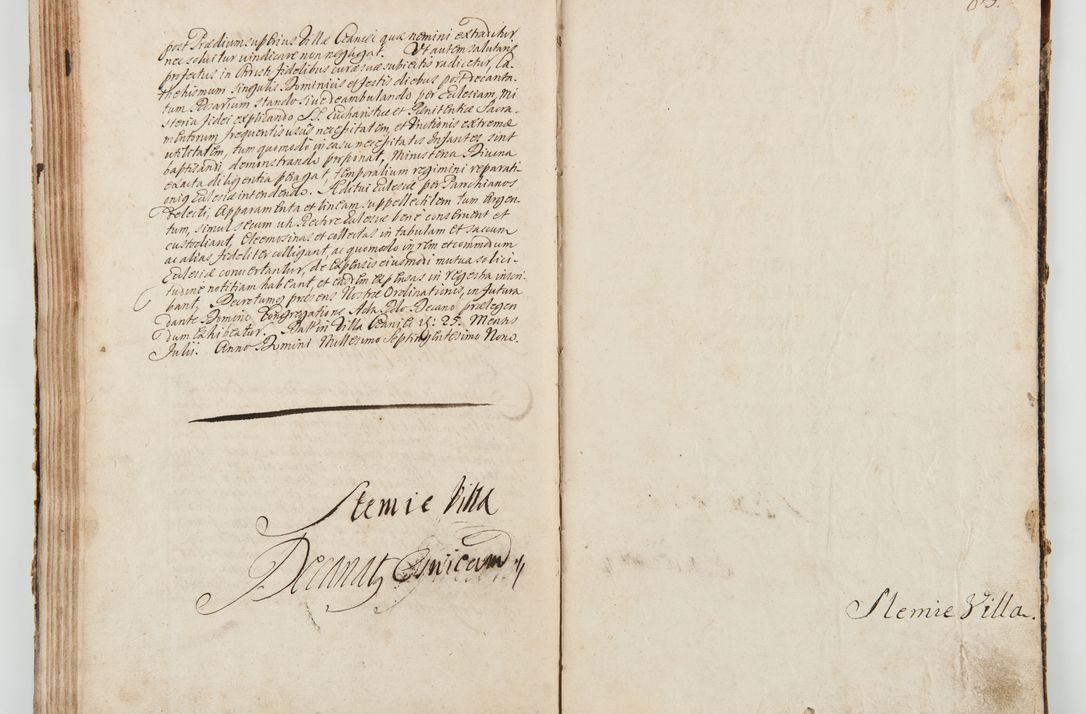 post Prædium superius Villæ Czaniec quæ nemini extraditur
nec solvitur vindicare non negligat. Ut autem salutaris
profectus in Christi fidelibus curæ suæ subiectis radicetur, Ca
thehismum singulis Dominicis et festis diebus post decanta
tum Rosarium stando sive deambulando per Ecclesiam, Mi
steria fidei explicando SS. Eucharistiæ et Pænitentiæ Sacra
mentorum frequentis usus necessitatem, et Unctionis extremæ
utilitatem, tum quomodo in casu necessitatis Infantes sint
baptisandi demonstrando proponat, Ministeria Divina
exacta diligentia peragat temporalium regimini reparati
oniq Ecclesiæ intendendo. Æditui Ecclesiæ per Parochianos
electi, Apparamenta et lineam suppellectilem tum Argen
tum, simul secum uti Rectore Ecclesiæ bene conservent et
custodiant, Eleemosinas et collectas in tabulam et sacum
ac alias fideliter colligant, ac quomodo in rem et commodum
Ecclesiæ convertantur, de expensis eiusmodi mutua solici
tudine notitiam habeant, et easdem expensas in regestra inscri
bant. Decretumq præsens Nostræ Ordinationis, in futura
dante Domino Congregatione Adm Rdo Decano prælegen
dum exhibeatur. Dat in Villa Czaniec 25. Mensis
Julii. Anno Domini Millesimo Septingentesimo Nono.
Slemie Villa
Decanatq
Slemie Villa.